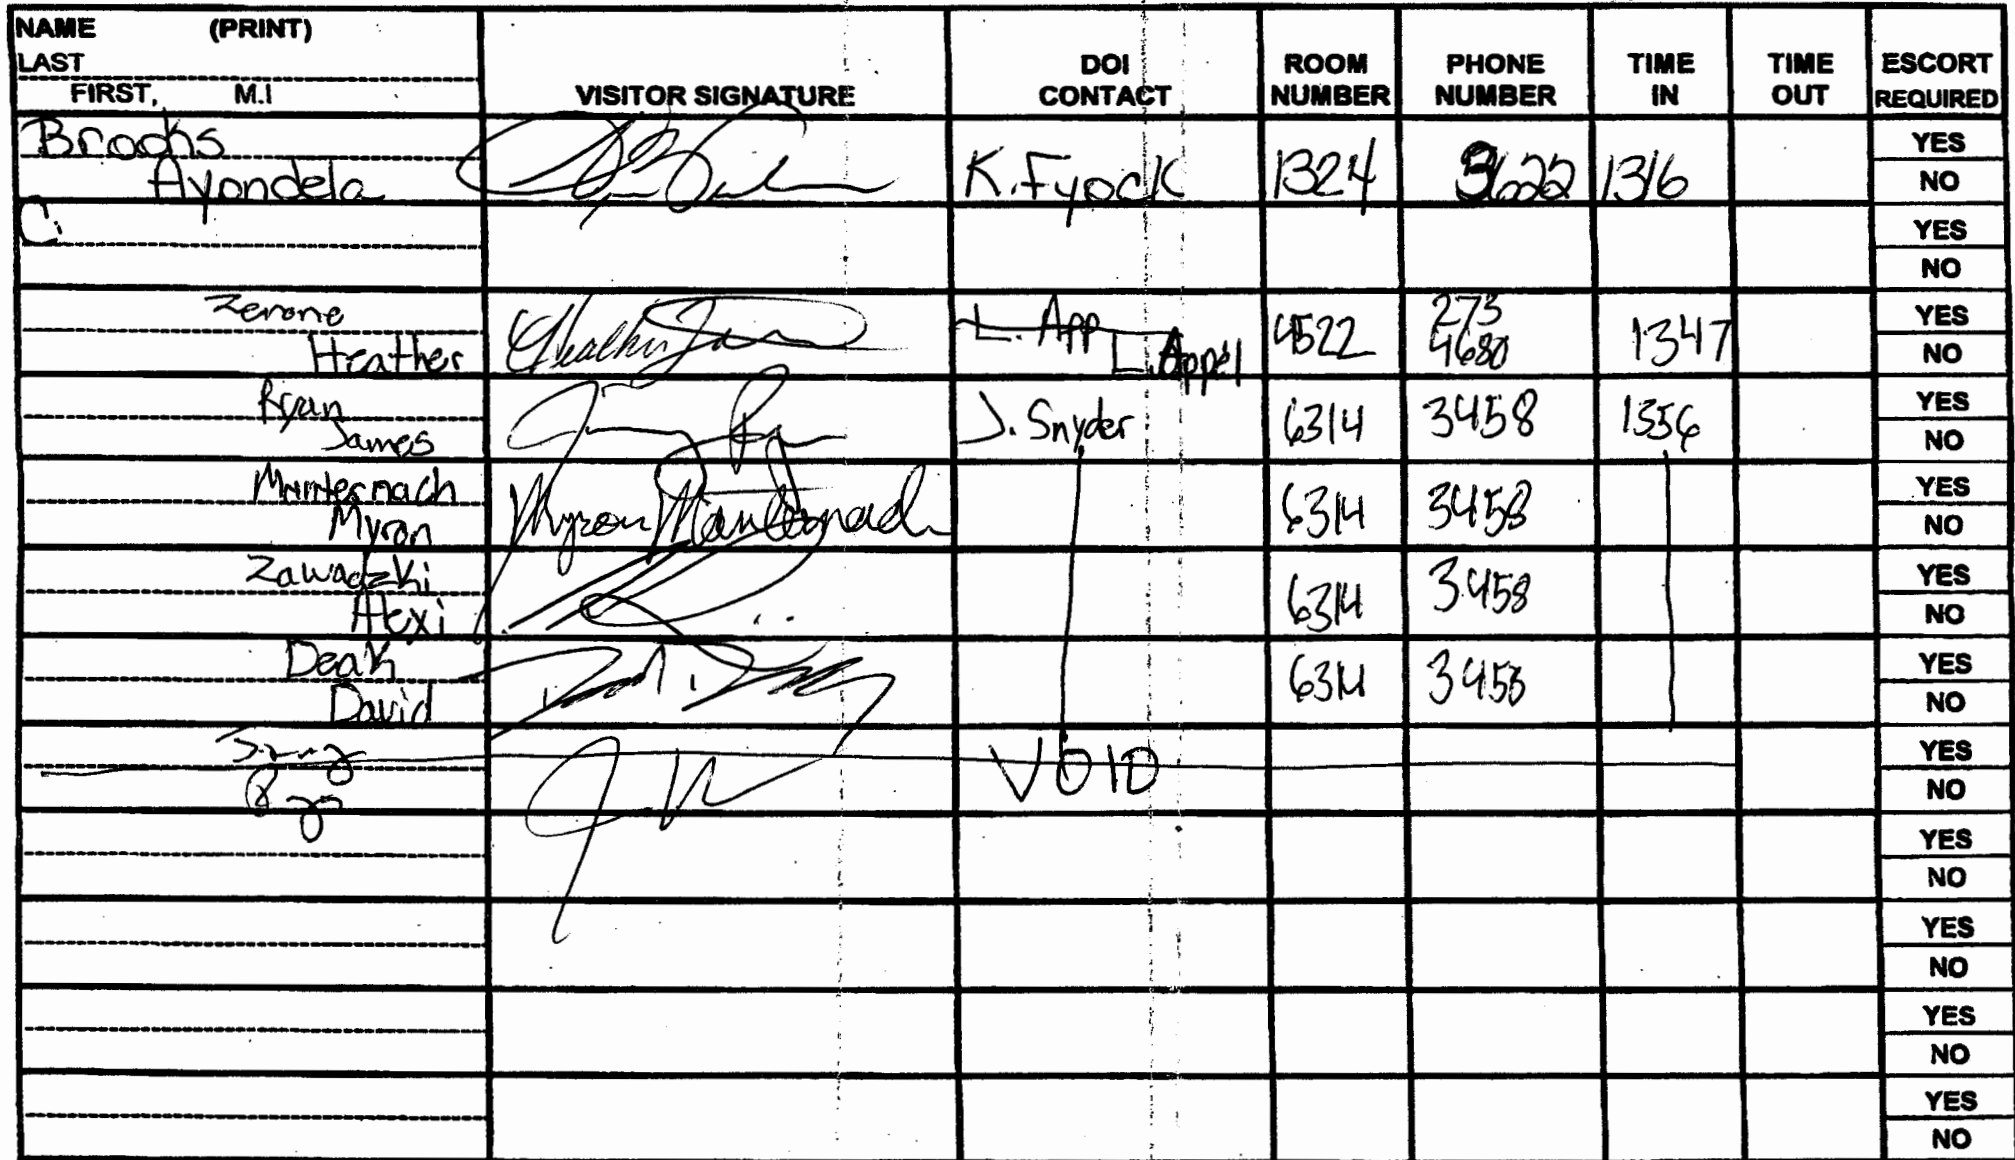 NAME (PRINT)
LAST
FIRST, M.I
VISITOR SIGNATURE
DOI CONTACT
ROOM NUMBER
PHONE NUMBER
TIME IN
TIME OUT
ESCORT REQUIRED
Brooks
Ayondela
K. Fyock 1324 3622 1316
YES
NO
C.
YES
NO
Zerone
Heather
L. App L. Appel 4522 273 4680 1347
YES
NO
Ryan
James
J. Snyder 6314 3458 1356
YES
NO
Myron
Myron 6314 3458
YES
NO
Zawadzki
Alexi
6314 3458
YES
NO
Deak
David
6314 3458
YES
NO
VOID
YES
NO
YES
NO
YES
NO
YES
NO
YES
NO